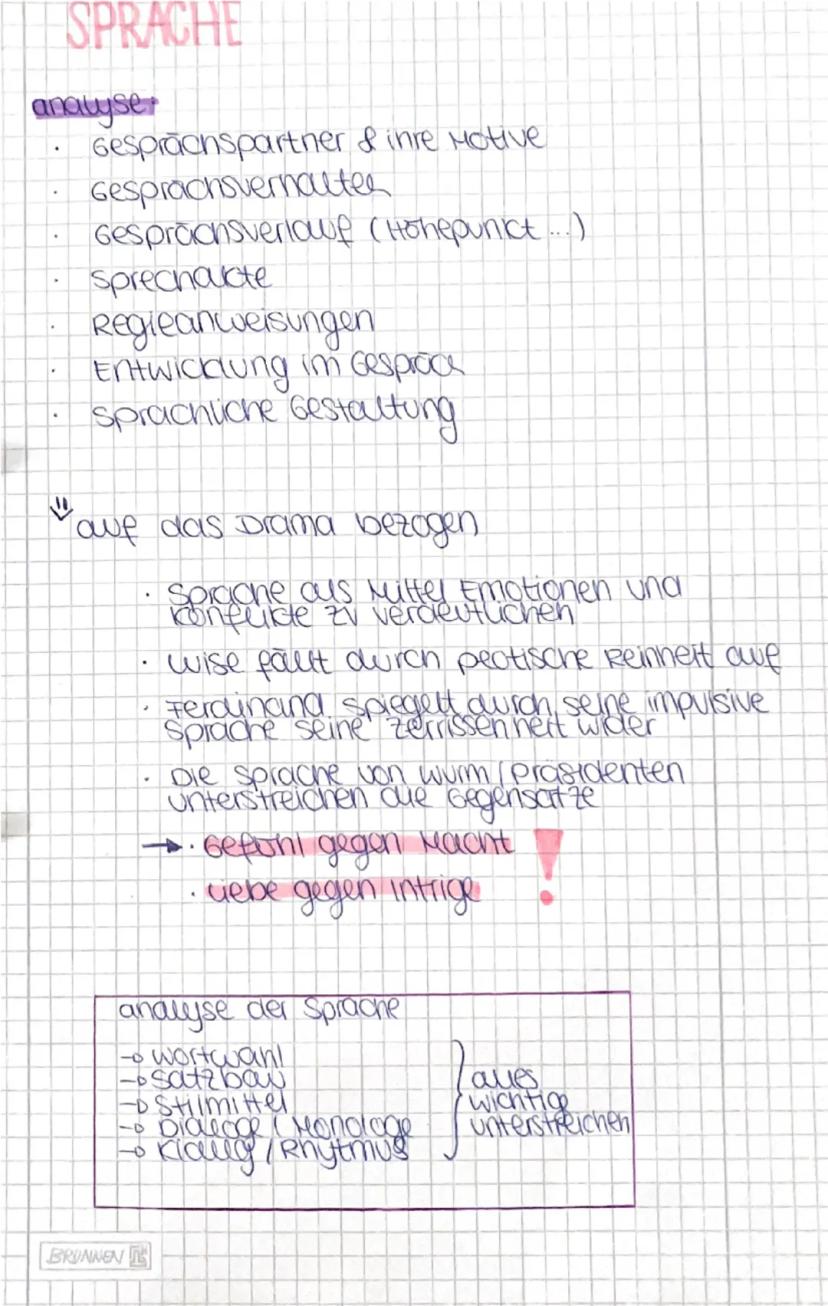 SPRACHE
analyse:
· Gesprächspartner & ihre Motive
· Gesprächsverhalten
· Gesprächsverlauf (Höhepunkt ...)
· Sprechakte
· Regieanweisungen
· Entwicklung im Gespräch
· sprachliche Gestaltung
auf das Drama bezogen
· Sprache als Mittel Emotionen und
Konflikte zu verdeutlichen
· Luise fällt durch peotische Reinheit auf
· Ferdinand spiegelt durch seine impulsive
Sprache seine Zerrissenheit wider
· Die Sprache von Wurm/Präsidenten
unterstreichen die Gegensätze
→ · Gefühl gegen Macht !
· Liebe gegen Intrige
analyse der Sprache
→ Wortwahl
→ Satzbau
→ Stilmittel
→ Dialoge / Monologe
→ Klang / Rhytmus
alles
wichtige
unterstreichen
BRUNNEN